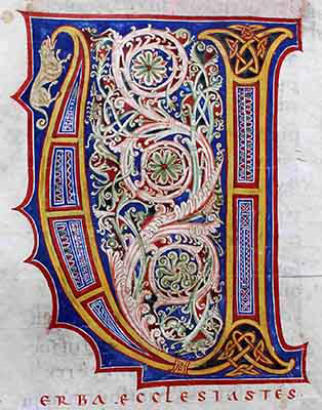 V
ERBA ECCLESIASTES